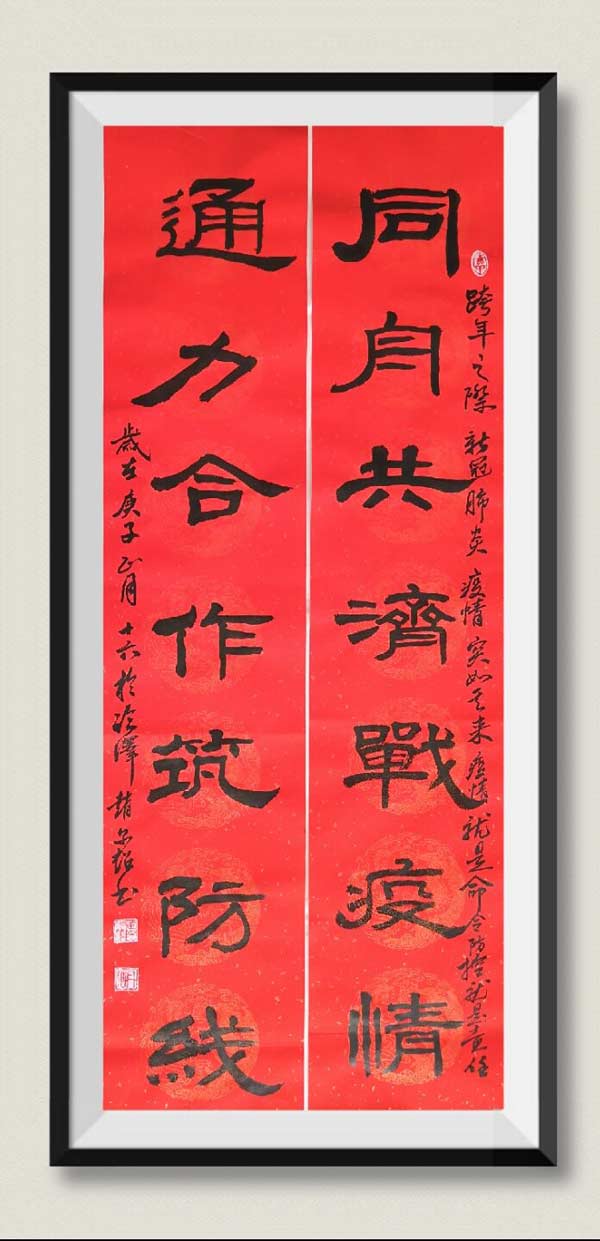 跨年之際 新冠肺炎 疫情突如其来 疫情就是命令防控就是责任
同舟共濟戰疫情
通力合作筑防线
歲在庚子正月十六於菏澤 趙尔 书